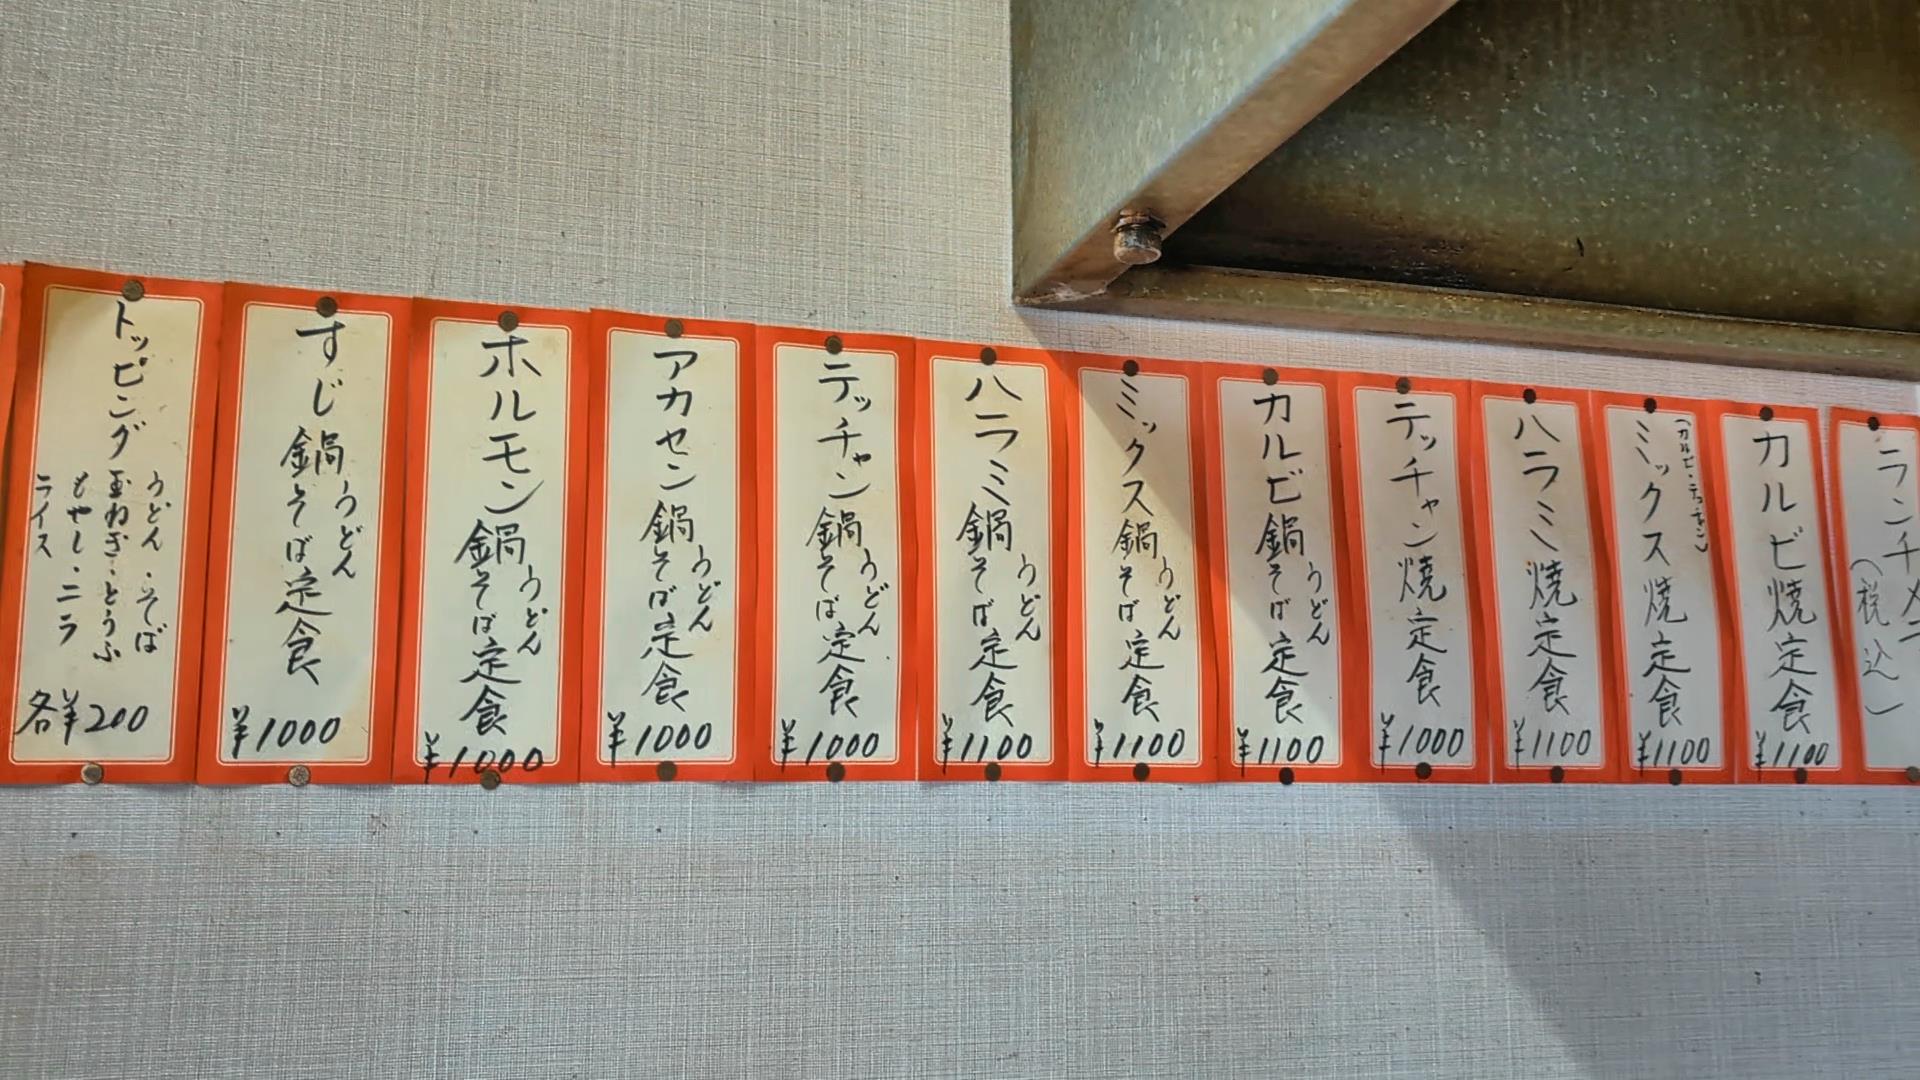 ランチメ
(税込)
カルビ焼定食
¥1100
ミックス焼定食
(カルビ・テッチャン)
¥1100
ハラミ焼定食
¥1100
テッチャン焼定食
¥1000
カルビ鍋うどん
そば定食
¥1100
ミックス鍋うどん
そば定食
¥1100
ハラミ鍋うどん
そば定食
¥1100
テッチャン鍋うどん
そば定食
¥1000
アカセン鍋うどん
そば定食
¥1000
ホルモン鍋うどん
そば定食
¥1000
すじ鍋うどん
そば定食
¥1000
トッピング
うどん・そば
玉ねぎ・とうふ
もやし・ニラ
ライス
各¥200